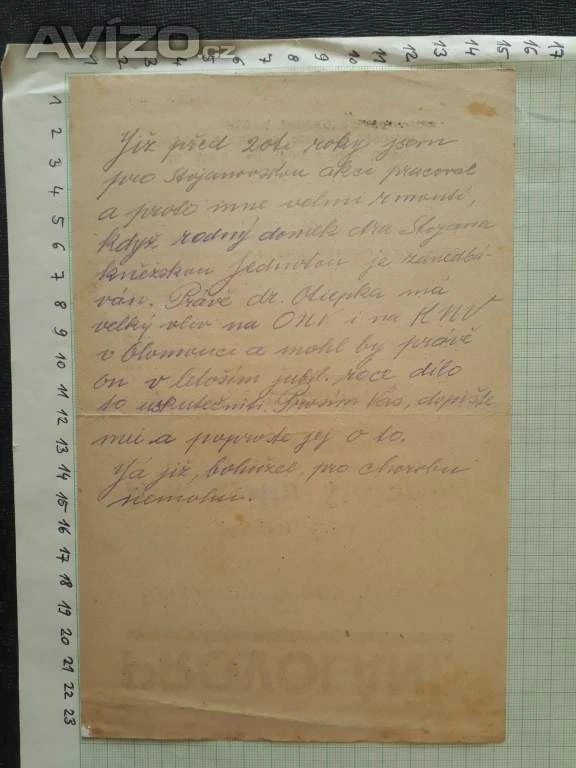 Avízo.cz
1 2 3 4 5 6 7 8 9 10 11 12 13 14 15 16 17
1 2 3 4 5 6 7 8 9 10 11 12 13 14 15 16 17 18 19 20 21 22 23
Již před 20ti roky jsem
pro Stojanovskou akci pracoval
a proto mne velmi rmoutí,
když rodný domek dra Stojana
kněžskou Jednotou je zanedbá-
ván. Právě dr. Otiepka má
velký vliv na ONV i na KNV
v Olomouci a mohl by právě
on v letošním jubil. roce dílo
to uskutečniti. Prosím Vás, dopište
mu a poproste jej o to.
Já již, bohužel, pro chorobu
nemohu.
PROVOLÁNÍ